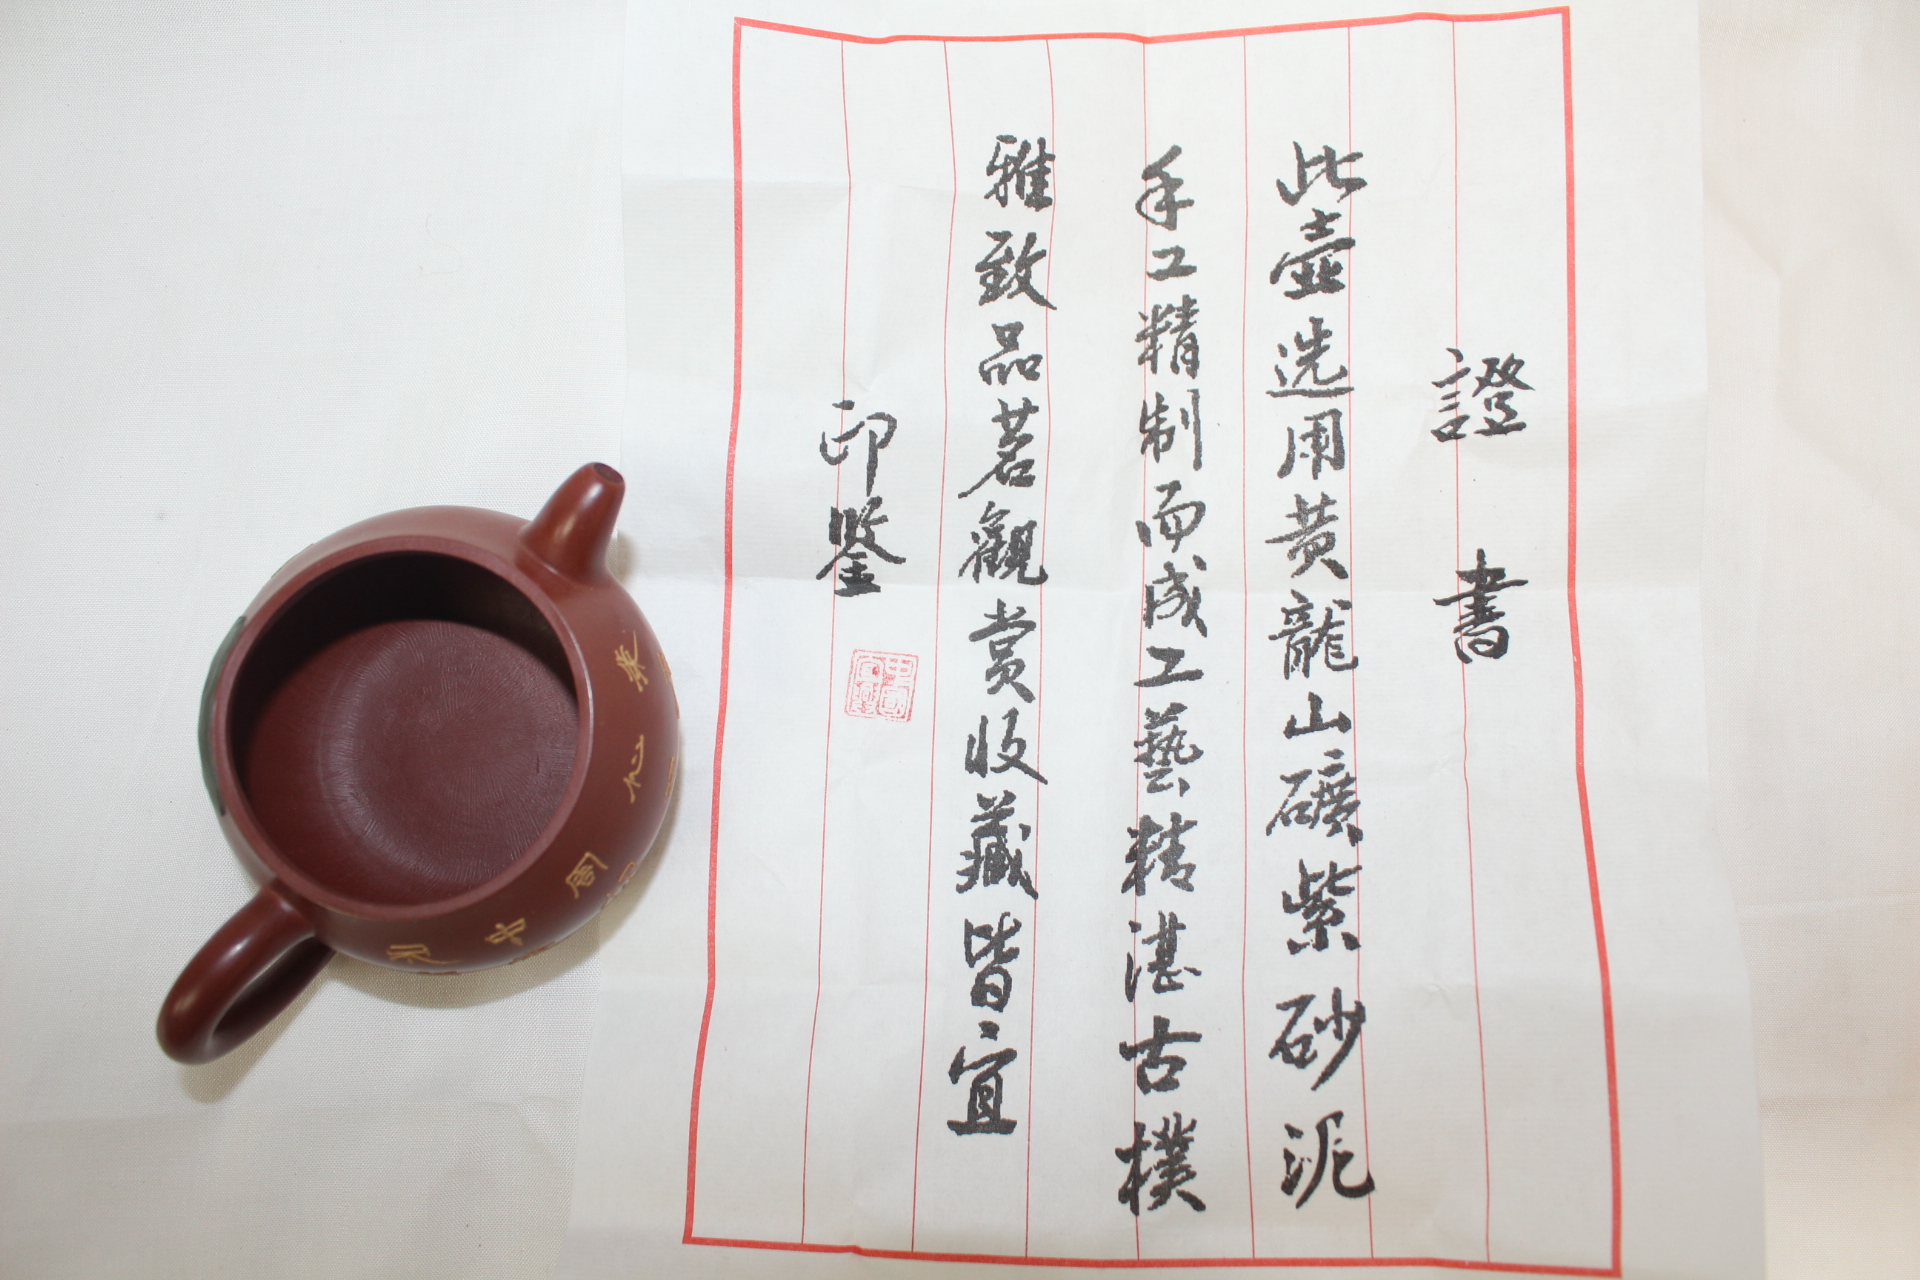 證書
此壺选用黄龍山礦紫砂泥
手工精制而成工藝精湛古樸
雅致品茗觀赏收藏皆宜
印鑒
中國宜興